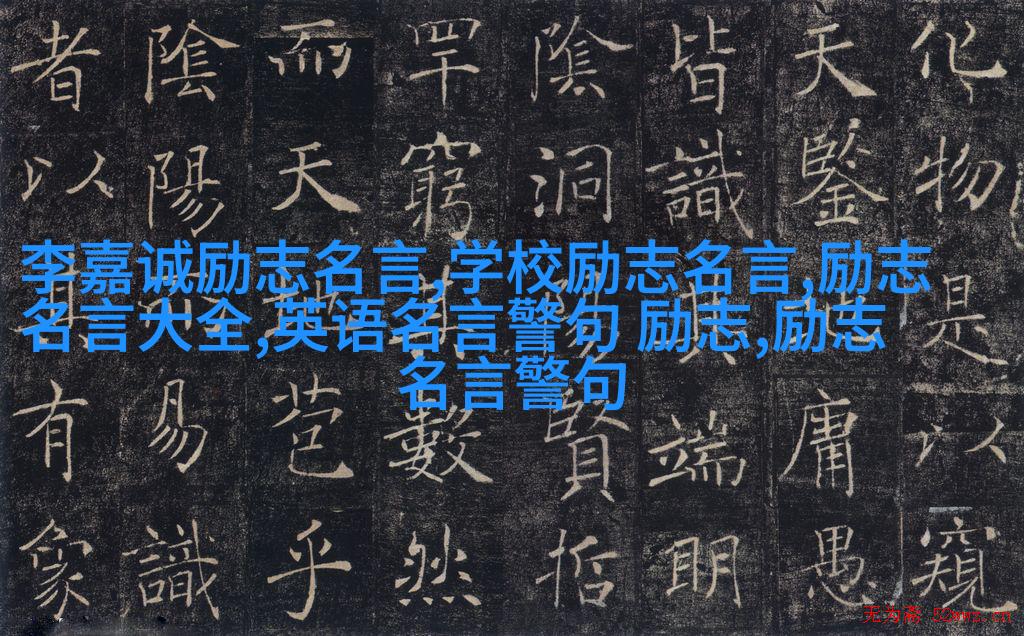 化物是以窺
天鑒庸愚
皆識其端明
陰洞陽賢哲
罕窮其數然
而天地苞乎
陰陽而易識
者以其有象
李嘉诚励志名言,学校励志名言,励志
名言大全,英语名言警句 励志,励志
名言警句
无为斋 52wwz.cn